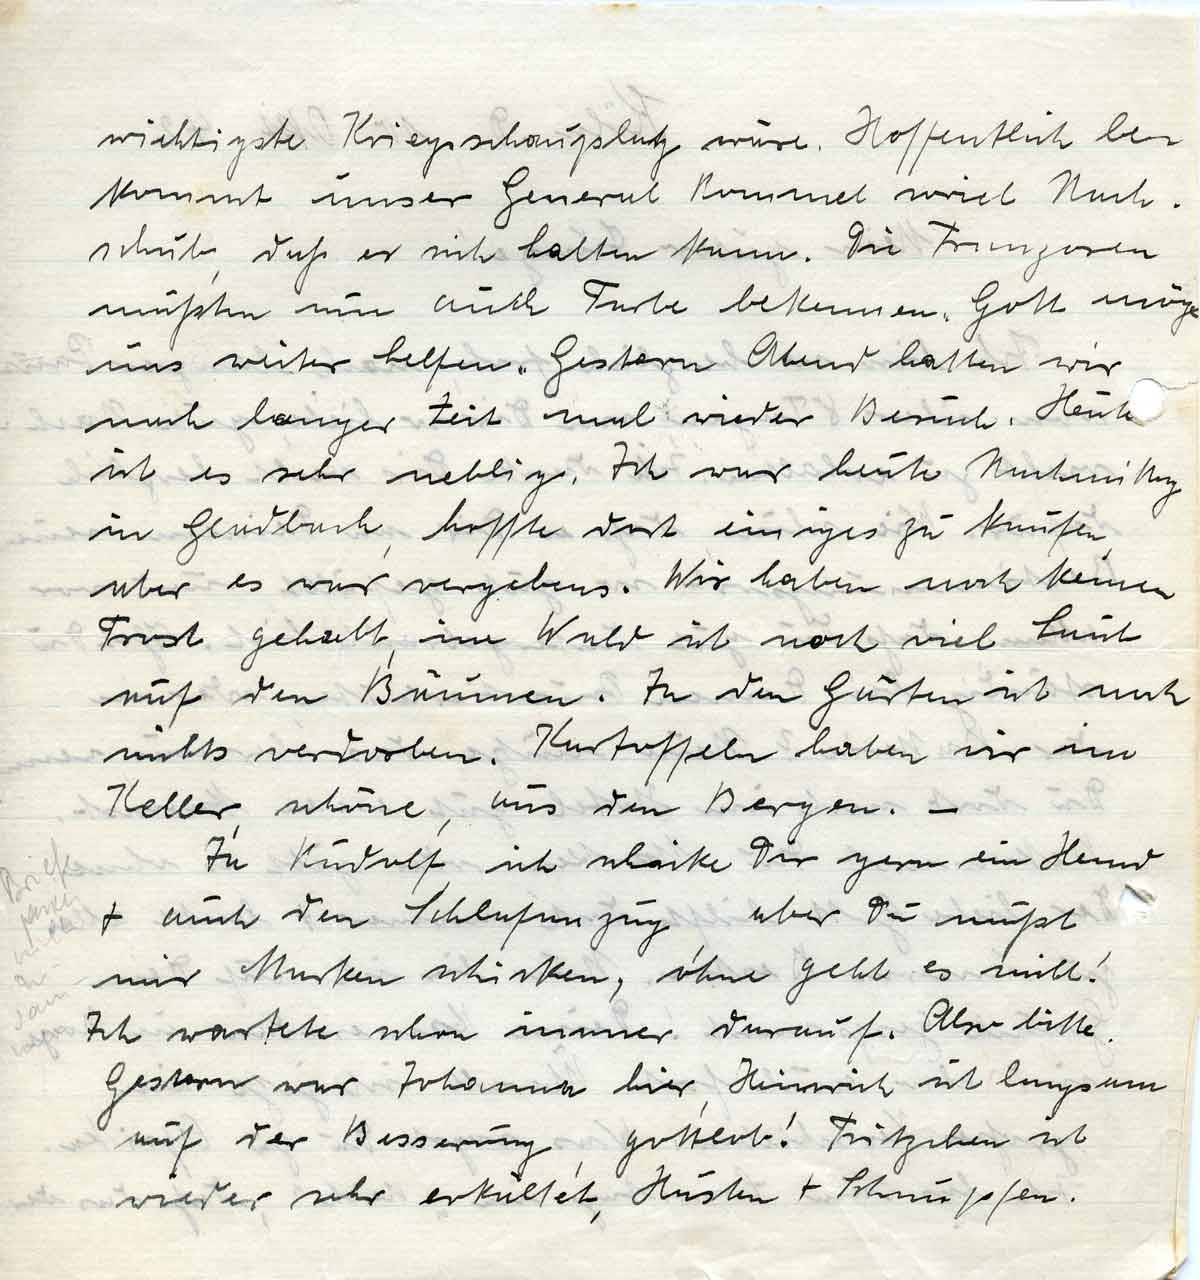 wichtigste Kriegsschauplatz wäre. Hoffentlich be-
kommt unser General Rommel soviel Nach-
schub, daß er sich halten kann. Die Franzosen
mußten nun auch Farbe bekennen. Gott möge
uns weiter helfen. Gestern Abend hatten wir
nach langer Zeit mal wieder Besuch. Heute
ist es sehr neblig. Ich war heute Nachmittag
in Gladbach, hoffte dort einiges zu kaufen,
aber es war vergebens. Wir haben noch keinen
Frost gehabt, im Wald ist noch viel Laub
auf den Bäumen. In den Gärten ist noch
nichts verdorben. Kartoffeln haben wir im
Keller, schöne, aus den Bergen. —
Ja Rudolf ich schicke Dir gern ein Hemd
+ auch den Schlafanzug aber Du mußt
mir Marken schicken, ohne geht es nicht!
Ich wartete schon immer darauf. Also bitte.
Gestern war Johanna hier, Heinrich ist langsam
auf der Besserung, gottlob! Fritzchen ist
wieder sehr erkältet, Husten + Schnupfen.
Brief